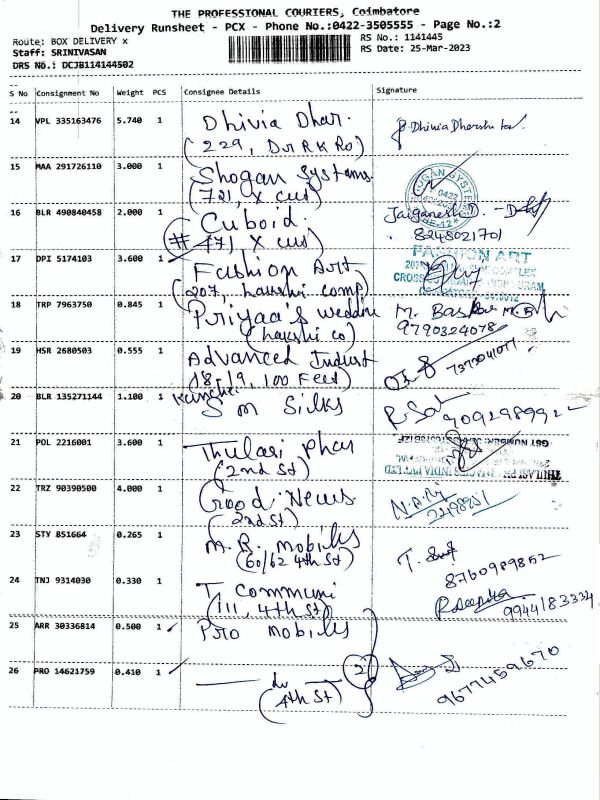 THE PROFESSIONAL COURIERS, Coimbatore
Delivery Runsheet - PCX - Phone No.:0422-3505555 - Page No.:2
Route: BOX DELIVERY x
Staff: SRINIVASAN
DRS No.: DCJB114144502
RS No.: 1141445
RS Date: 25-Mar-2023
S No Consignment No Weight PCS Consignee Details Signature
14 VPL 335163476 5.740 1 Dhivia Dhar.
(229, Dr R K Ro)
15 MAA 291726110 3.000 1 Shogan Systems.
(721, X cut)
16 BLR 490840458 2.000 1 Cuboid. Jaiganesh D.
(#471, X cut) 8248021701
17 DPI 5174103 3.600 1 Fashion Art FASHION ART
(207, Lakshi comp)
18 TRP 7963750 0.845 1 Priyaa's weddin M. Baskar
(Lakshi co) 9790324078
19 HSR 2680503 0.555 1 Advanced Indust
18-19, 100 Feet)
20 BLR 135271144 1.100 1 Kanchei
S m Silks 9092989922
21 POL 2216001 3.600 1 Thulasi phar
(2nd St)
22 TRZ 90390500 4.000 1 Good News
(2nd St)
23 STY 851664 0.265 1 M. R. mobiles
(60/62 4th St) 8760989852
24 TNJ 9314030 0.330 1 T communi
(111, 4th St) 9944183334
25 ARR 30336814 0.500 1 Pro mobiles
26 PRO 14621759 0.410 1 2
(4th St) 9677459670